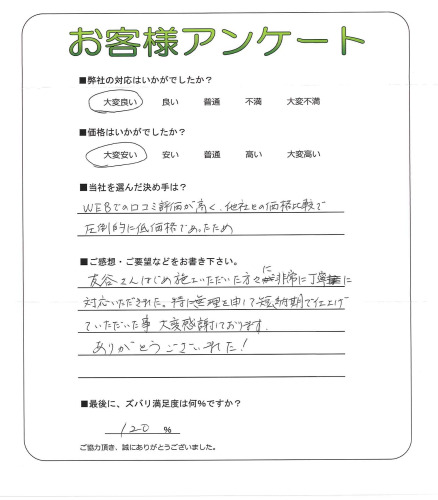 お客様アンケート
■弊社の対応はいかがでしたか？
大変良い 良い 普通 不満 大変不満
■価格はいかがでしたか？
大変安い 安い 普通 高い 大変高い
■当社を選んだ決め手は？
WEBでの口コミ評価が高く、他社との価格比較で
圧倒的に低価格であったため
■ご感想・ご要望などをお書き下さい。
友谷さんはじめ施工いただいた方々に非常に丁寧に
対応いただきれた。特に無理を申して短納期で仕上げ
ていただいた事 大変感謝しております。
ありがとうございました！
■最後に、ズバリ満足度は何%ですか？
120 %
ご協力頂き、誠にありがとうございました。